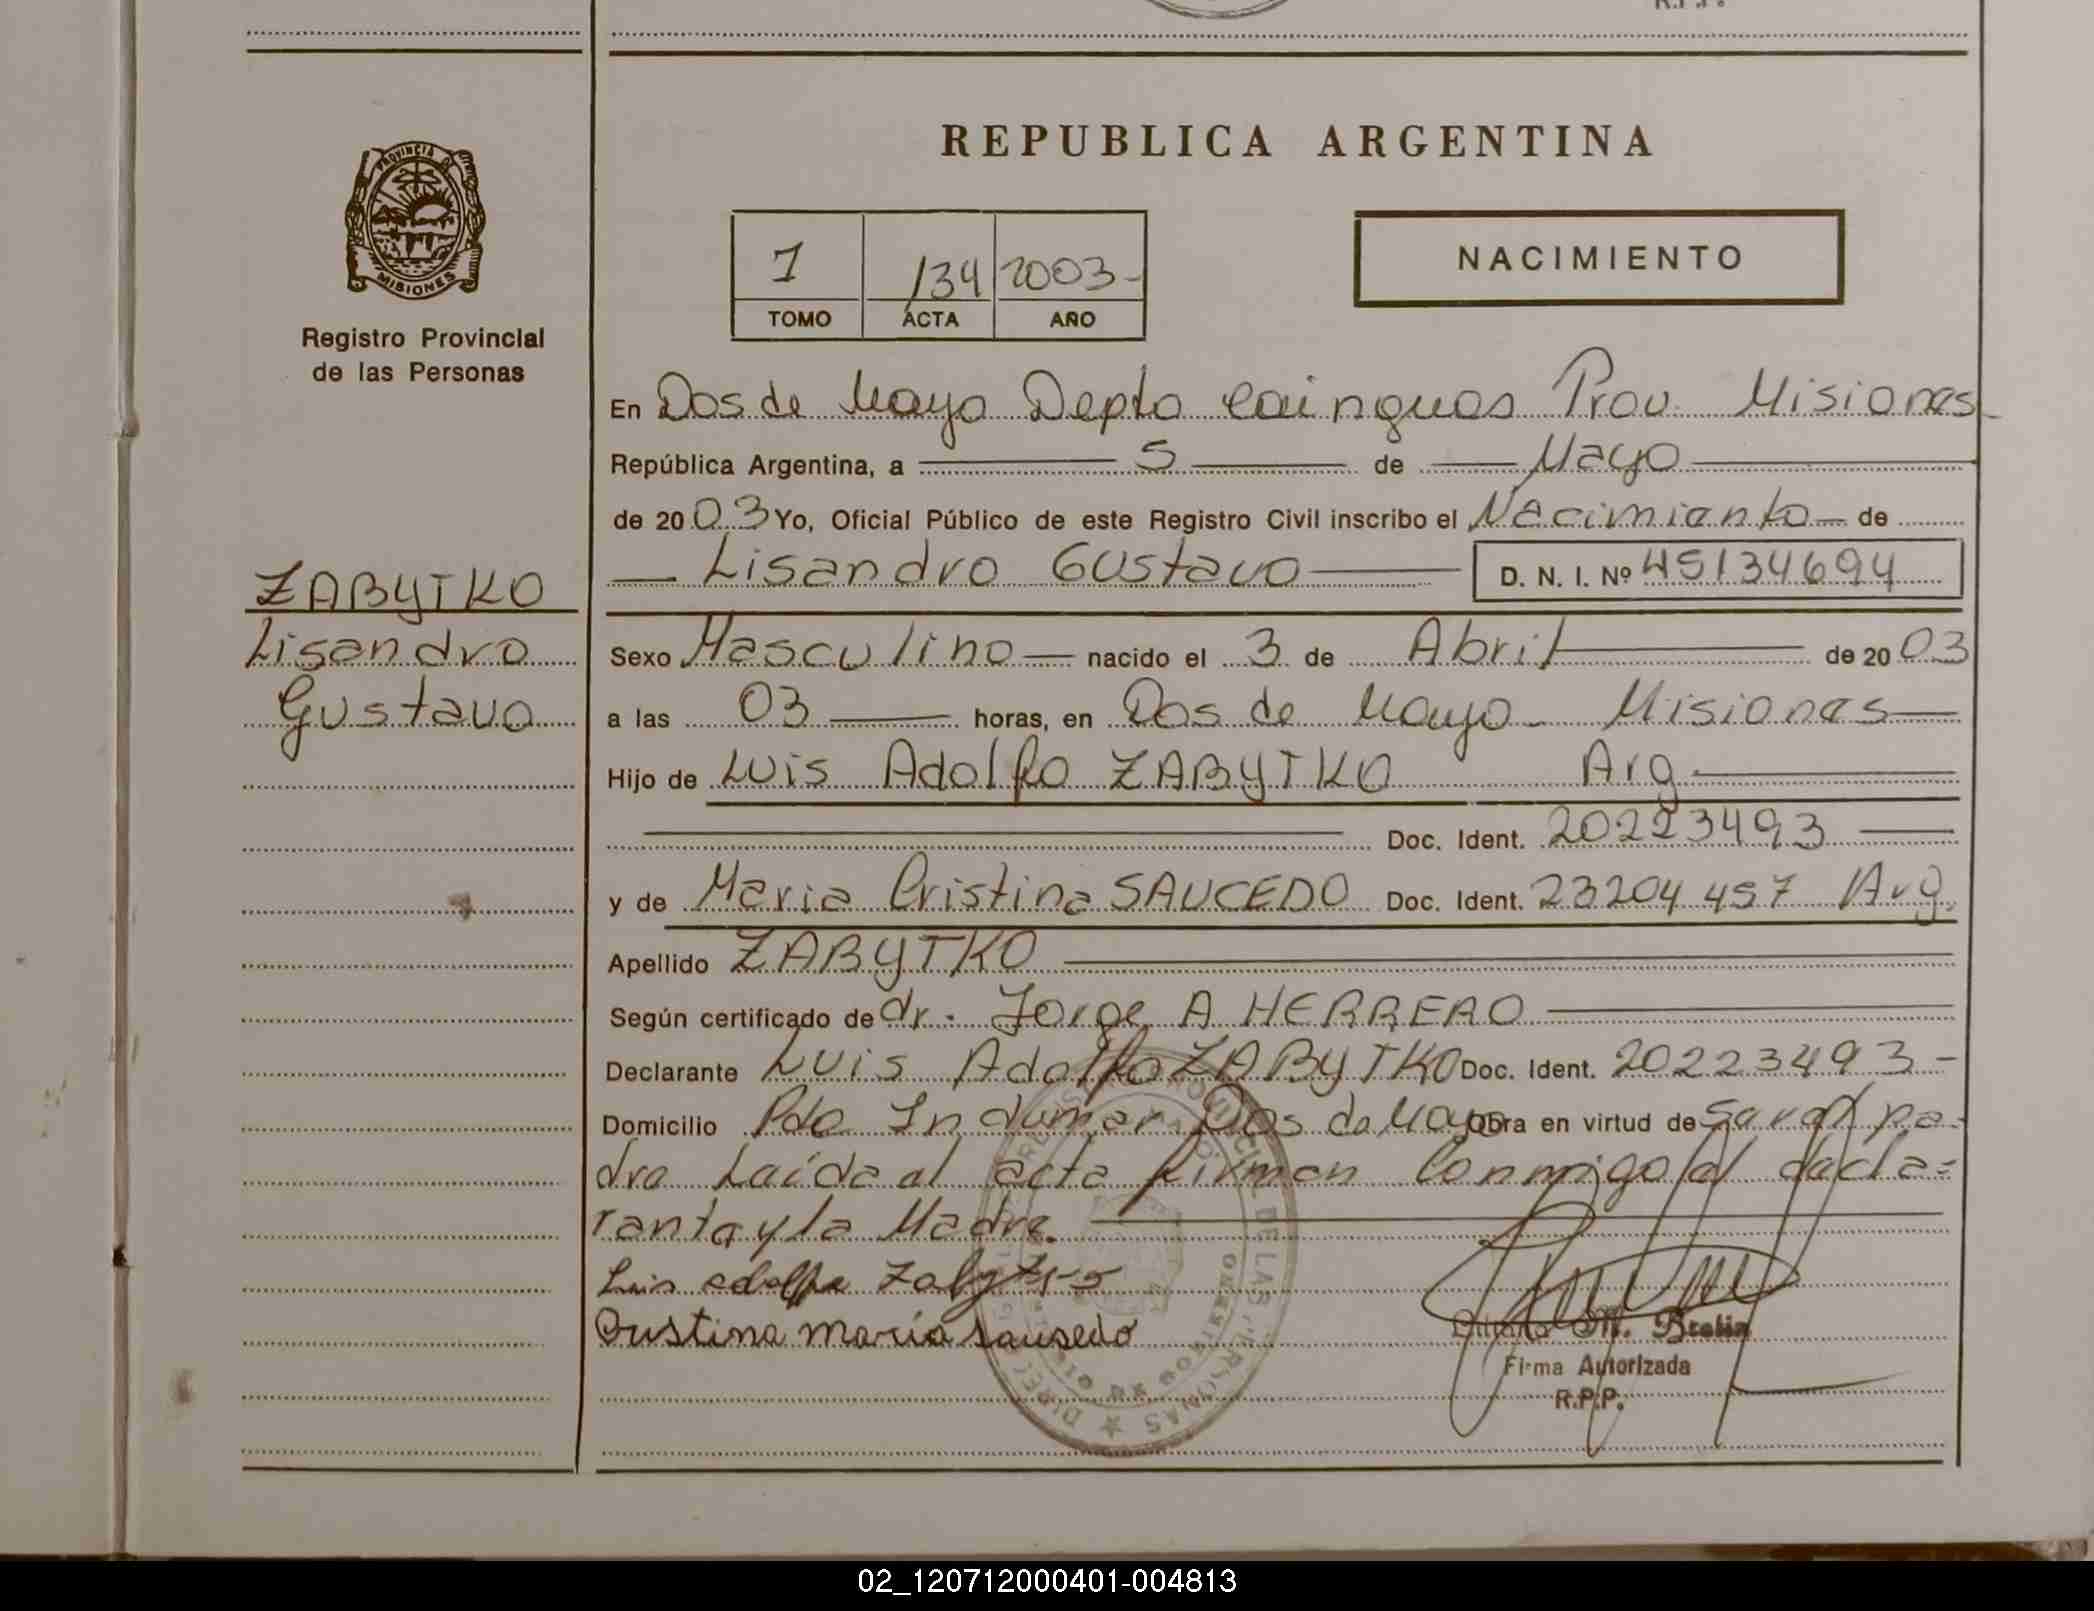 R.P.P.
REPUBLICA ARGENTINA
PROVINCIA DE
MISIONES
Registro Provincial
de las Personas
1 134 2003-
TOMO ACTA AÑO
NACIMIENTO
En Dos de Mayo Depto Cainguas Prov. Misiones
República Argentina, a 5 de Mayo
de 2003 Yo, Oficial Público de este Registro Civil inscribo el Nacimiento de
Lisandro Gustavo D. N. I. Nº 45134694
ZABYTKO
Lisandro
Gustavo
Sexo Masculino nacido el 3 de Abril de 2003
a las 03 horas, en Dos de Mayo - Misiones
Hijo de Luis Adolfo ZABYTKO Arg
Doc. Ident. 20223493
y de Maria Cristina SAUCEDO Doc. Ident. 23204457 Arg.
Apellido ZABYTKO
Según certificado de dr. Jorge A HERRERO
Declarante Luis Adolfo ZABYTKO Doc. Ident. 20223493-
Domicilio Pdo Indumar Dos de Mayo Obra en virtud de Saral pa-
dre Leída el acta firman Conmigo el decla=
rante y la Madre.
Luis adolfo Zabytko
Cristina maria Sausedo
M. Brolin
Firma Autorizada
R.P.P.
02_120712000401-004813